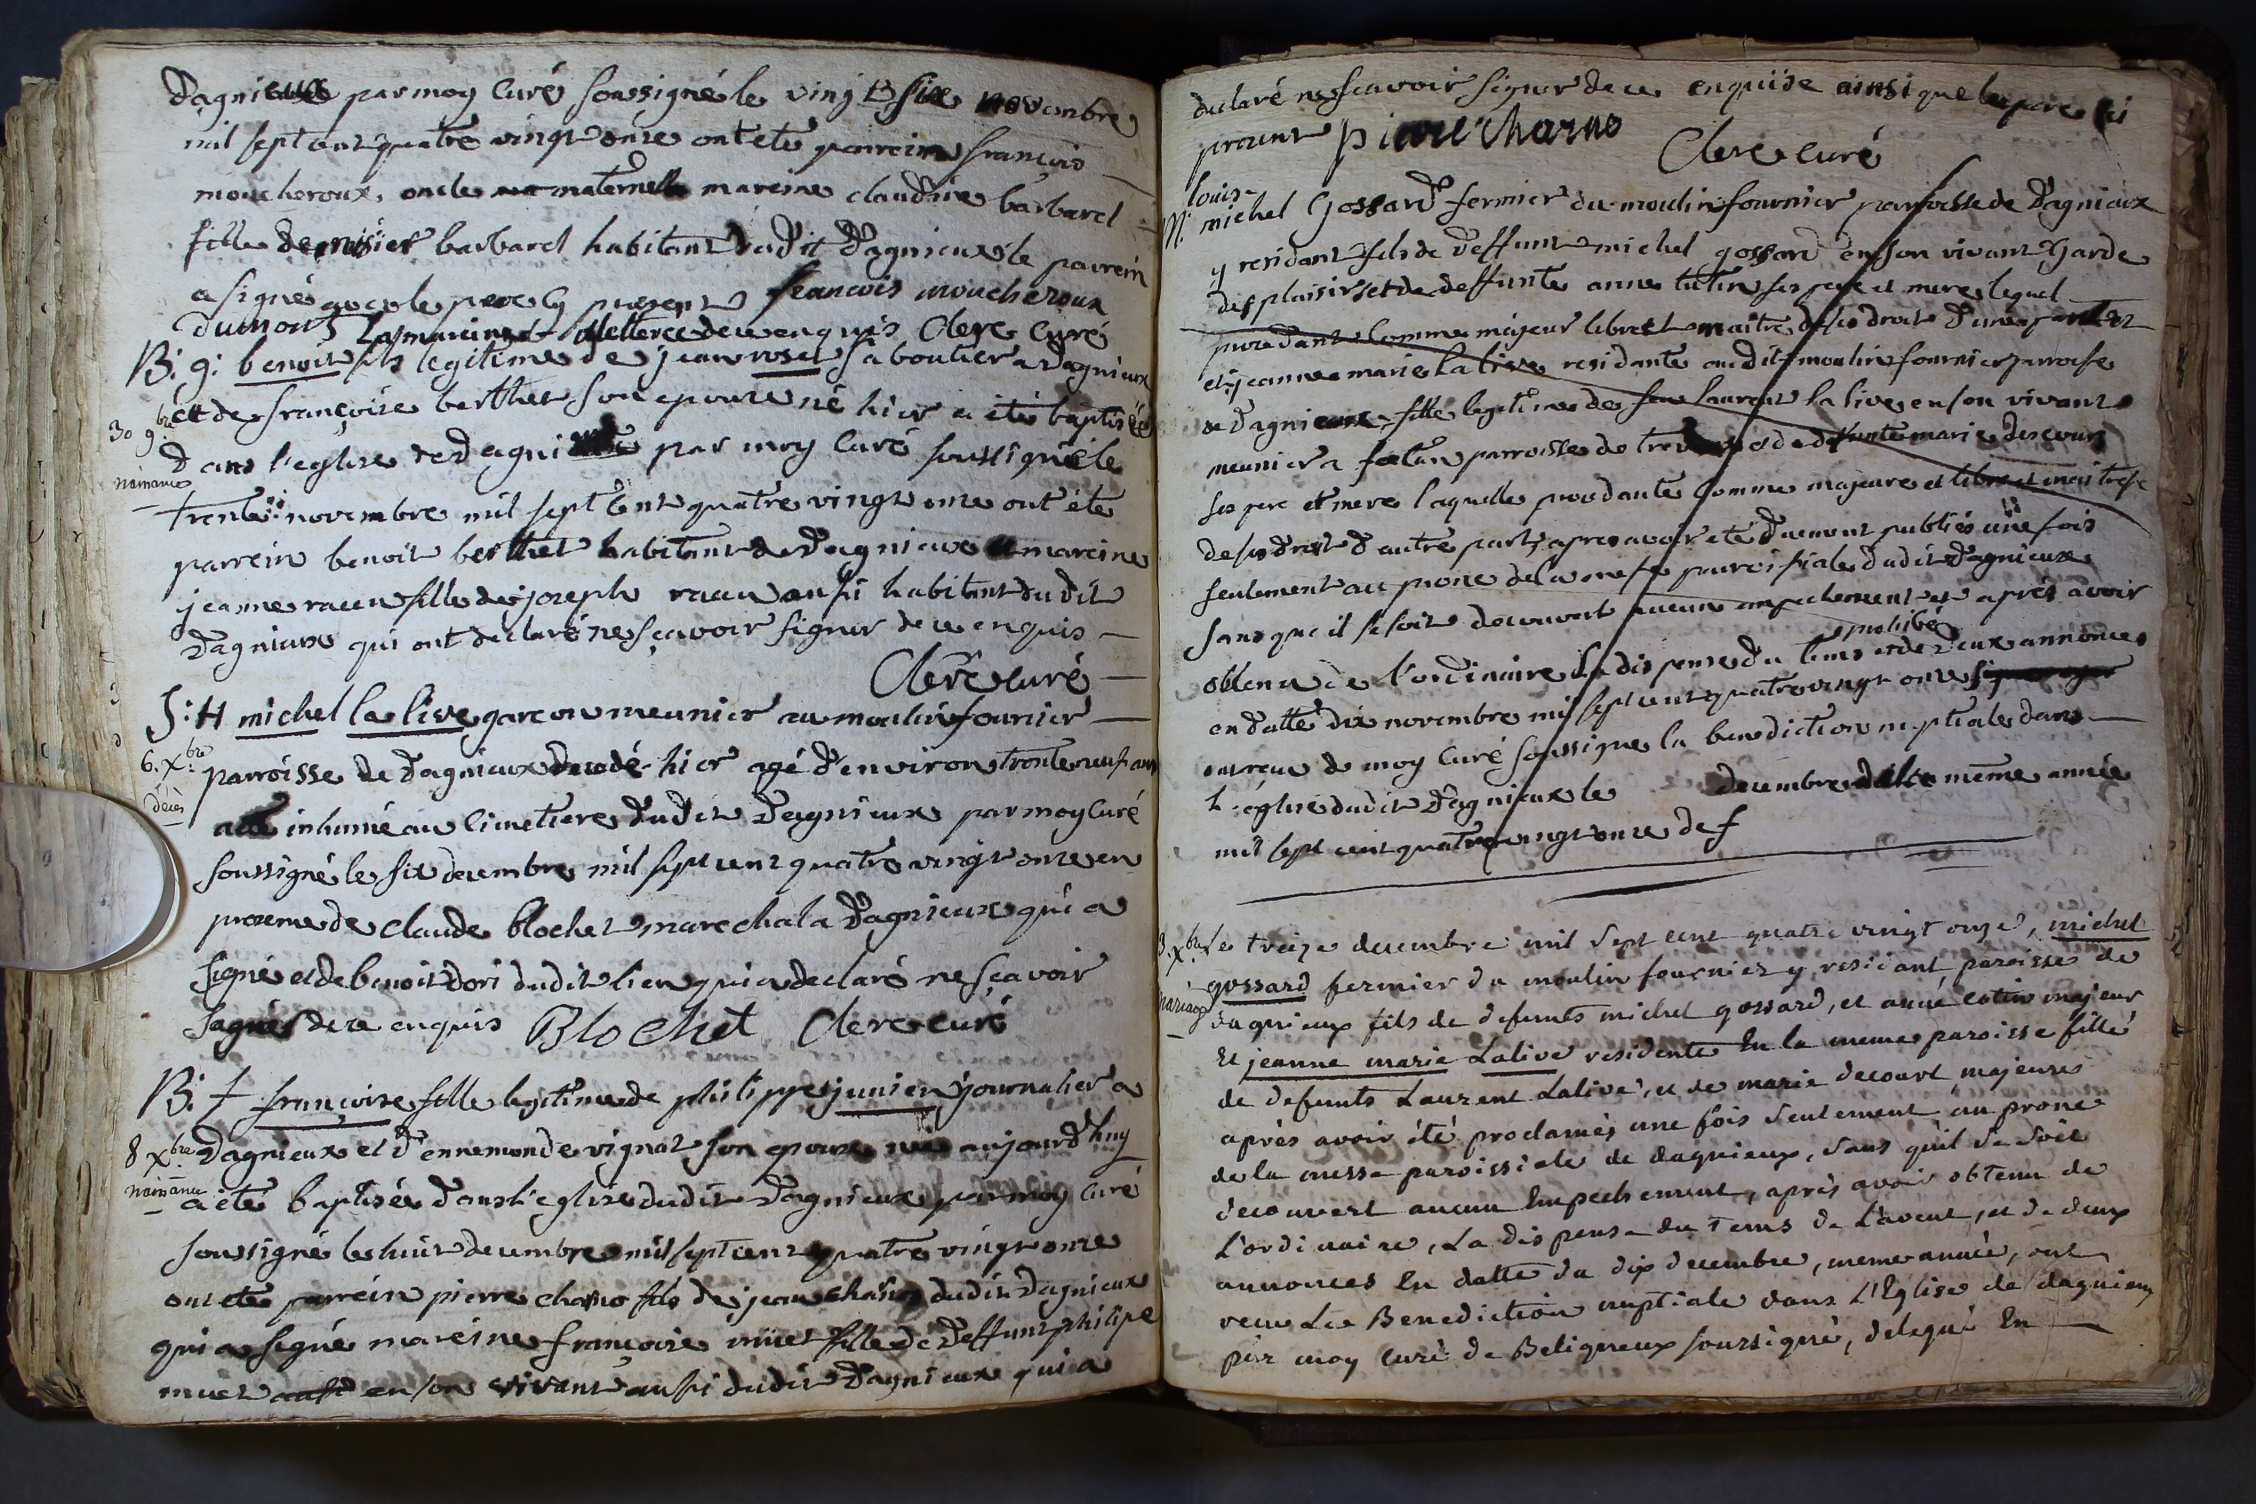 Dagnieux par moy Curé soussigné le vingt six novembre
mil sept cent quatre vingt onze ont été parrein françois
moucheroux, oncle maternelle mareine claudine barbarel
fille de barbarel habitant dudit Dagnieux le parrein
a signé avec le pere cy present francois moucheroux
dumont La mareine illetterée de ce enquis Clere Curé
B: 9: benoit fils legitime de jean roset saboutier a Dagnieux
30 9.bre et de françoise berthet son epouse né hier a été baptisé
dans l'eglise de Dagnieux par moy Curé soussigné le
naissance
trente novembre mil sept cent quatre vingt onze ont été
parrein benoit berthet habitant de Dagnieux et mareine
jeanne racu fille de joseph racu aussi habitant dudit
Dagnieux qui ont declaré ne sçavoir signer de ce enquis
Clere curé
S: H michel la live garcon meunier au moulin fournier
6. X.bre parroisse de Dagnieux decedé hier agé d'environ trente neuf ans
décès
a été inhumé au cimetiere dudit Dagnieux par moy Curé
soussigné le six decembre mil sept cent quatre vingt onze en
presence de claude blochet marechal a Dagnieux qui a
signé et de benoit dori dudit lieu qui a declaré ne sçavoir
signer de ce enquis Blochet Clere curé
B: f françoise fille legitime de philippe junien journalier a
8 Xbre Dagnieux et d'ennemonde vignat son epouse née aujourd'huy
naissance
a été baptisée dans l'eglise dudit Dagnieux par moy Curé
soussigné le huit decembre mil sept cent quatre vingt onze
ont été parrein pierre charno fils de jean charno dudit Dagnieux
qui a signé mareine françoise muet fille de deffunt philipe
muet en son vivant aussi dudit Dagnieux qui a
declaré ne sçavoir signer de ce enquise ainsi que le pere ici
present pierre Charno
Clere curé
louis
M: michel Gossard fermier du moulin fournier parroisse de Dagnieux
y residant fils de deffunt michel gossard en son vivant Garde
des plaisirs et de deffunte anne ses pere et mere lequel
procedant Comme majeur libre et maitre de ses droit d'une part et
et jeanne marie La live residante audit moulin fournier parroise
de Dagnieux, fille legitime de feu laurent la live en son vivant
meunier a parroisse de et de defunte marie descours
ses pere et mere laquelle procedante Comme majeure et libre et maitresse
de ses droit d'autre part, apres avoir été duement publiés une fois
seulement au prone de la messe paroissiale dudit Dagnieux
sans que il se soit decouvert aucun empechement et aprés avoir
prohibé
obtenu de l'ordinaire La dispense du tems et de deux annonces
en datte dix novembre mil sept cent quatre vingt onze
ont reçu de moy Curé soussigné la benediction nuptiale dans
l'église dudit Dagnieux le decembre de la même année
mil sept cent quatre vingt onze de f
3. X.bre Le treize decembre mil sept cent quatre vingt onze, michel
gossard fermier du moulin fournier y residant paroisse de
mariage Dagnieux fils de defunts michel gossard, et anne cotin majeur
Et jeanne marie Lalive residente En la meme paroisse fille
de defunts Laurent Lalive, et de marie decourt majeure
après avoir été proclamés une fois seulement au prone
de la messe paroissiale de dagnieux, sans qu'il se soit
decouvert aucun Empechement, après avoir obtenu de
L'ordinaire, La dispense du Tems de L'avent, et de deux
annonces En datte du dix decembre, meme année, ont
recu La Benediction nuptiale dans L'Eglise de dagnieux
par moy curé de Beligneux soussigné, delegué En